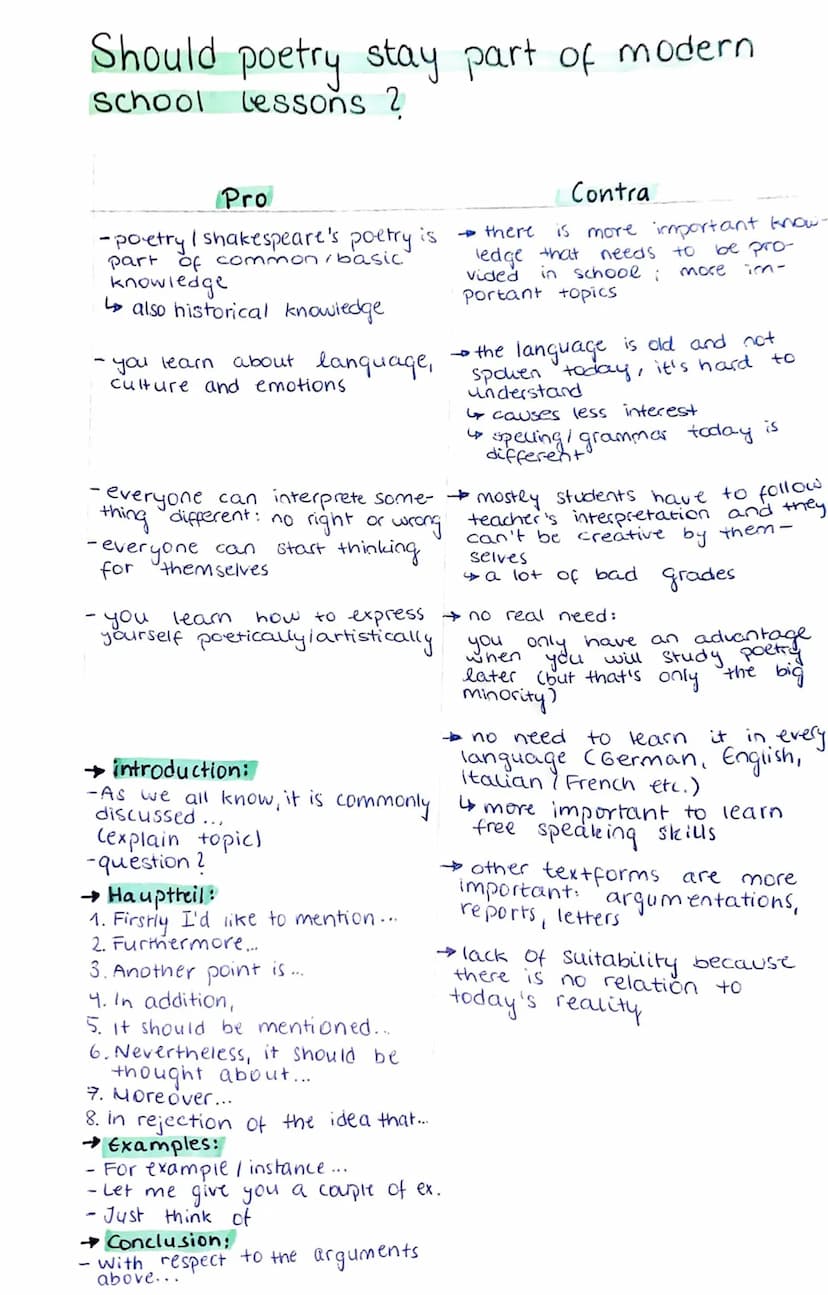 Should poetry stay part of modern
school lessons?
Pro
- poetry / shakespeare's poetry is
part of common / basic
knowledge
↳ also historical knowledge
- you learn about language,
culture and emotions
- everyone can interprete some-
thing different: no right or wrong
- everyone can start thinking
for themselves
- you learn how to express
yourself poetically/artistically
Contra
→ there is more important know-
ledge that needs to be pro-
vided in school ; more im-
portant topics
→ the language is old and not
spoken today, it's hard to
understand
↳ causes less interest
↳ spelling / grammar today is
different
→ mostly students have to follow
teacher's interpretation and they
can't be creative by them-
selves
↳ a lot of bad grades
→ no real need:
you only have an advantage
when you will study poetry
later (but that's only the big
minority)
→ no need to learn it in every
language (German, English,
Italian / French etc.)
↳ more important to learn
free speaking skills
→ other textforms are more
important: argumentations,
reports, letters
→ lack of suitability because
there is no relation to
today's reality
→ introduction:
- As we all know, it is commonly
discussed ...
(explain topic)
- question?
→ Hauptteil:
1. Firstly I'd like to mention...
2. Furthermore...
3. Another point is ...
4. In addition,
5. It should be mentioned...
6. Nevertheless, it should be
thought about...
7. Moreover...
8. In rejection of the idea that...
→ Examples:
- For example / instance ...
- Let me give you a couple of ex.
- Just think of
→ Conclusion:
- With respect to the arguments
above...